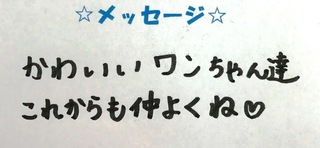 ☆メッセージ☆
かわいいワンちゃん達
これからも仲よくね♡